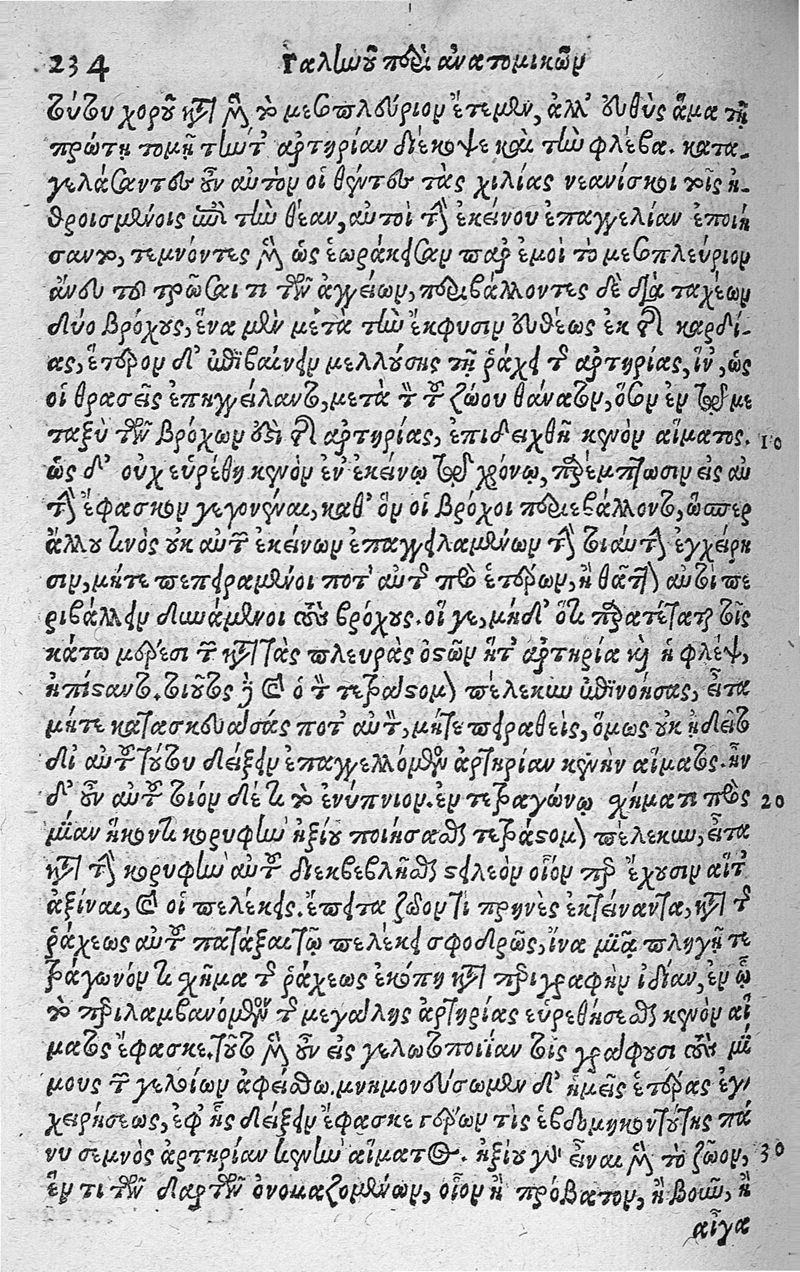 234 Γαληνοῦ περὶ ἀνατομικῶν
τούτου χοροῦ κατὰ μὲν τὸ μεσοπλεύριον ἔτεμεν, ἀλλ' εὐθὺς ἅμα τῇ
πρώτῃ τομῇ τὴν τ' ἀρτηρίαν διέκοψε καὶ τὴν φλέβα. κατα-
γελάσαντες οὖν αὐτὸν οἱ θέντες τὰς χιλίας νεανίσκοι τοῖς ἠ-
θροισμένοις ἐπὶ τὴν θέαν, αὐτοὶ τὴν ἐκείνου ἐπαγγελίαν ἐποιή
σαντο, τεμνόντες μὲν ὡς ἑωράκεσαν παρ' ἐμοὶ τὸ μεσοπλεύριον
ἄνευ τοῦ τρῶσαι τι τῶν ἀγγείων, περιβάλλοντες δὲ διὰ ταχέων
δύο βρόχους, ἕνα μὲν μετὰ τὴν ἔκφυσιν εὐθέως ἐκ τῆς καρδί-
ας, ἕτερον δ' ἐπιβαίνειν μελλούσης τῇ ῥάχει τῆς ἀρτηρίας, ἵν', ὡς
οἱ θρασεῖς ἐπηγγείλαντο, μετὰ τὸν τοῦ ζώου θάνατον, ὅσον ἐν τῷ με
ταξὺ τῶν βρόχων ἐστὶ τῆς ἀρτηρίας, ἐπιδειχθῇ κενὸν αἵματος. 10
ὡς δ' οὐχ εὑρέθη κενὸν ἐν ἐκείνῳ τῷ χρόνῳ, παρέμπτωσιν εἰς αὐ
τὴν ἔφασκον γεγονέναι, καθ' ὃν οἱ βρόχοι περιεβάλλοντο, ὥσπερ
ἄλλου τινὸς οὐκ αὐτῶν ἐκείνων ἐπαγγειλαμένων τὴν τοιαύτην ἐγχείρη
σιν, μήτε πεπειραμένοι ποτ' αὐτῆς πρὸ ἑτέρων, ἢ θᾶττον αὐτοὶ πε
ριβάλλειν δυνάμενοι τοὺς βρόχους. οἵ γε, μηδ' ὅτι παρατέταται τοῖς
κάτω μέρεσι τῶν κατὰ τὰς πλευρὰς ὀστῶν ἥτ' ἀρτηρία καὶ ἡ φλέψ,
ἠπίσταντο. τοιοῦτος γὰρ καὶ ὁ τὸν τετράστομον πέλεκυν ἐπινοήσας, εἶτα
μήτε κατασκευάσας ποτ' αὐτὸν, μήτε πειραθεὶς, ὅμως οὐκ ᾐδεῖτο
δι' αὐτοῦ τούτου δείξειν ἐπαγγελλόμενος ἀρτηρίαν κενὴν αἵματος. ἦν
δ' οὖν αὐτοῦ τοιόνδέ τι τὸ ἐνύπνιον. ἐν τετραγώνῳ σχήματι πρὸς 20
μίαν ἥκοντι κορυφὴν ἠξίου ποιήσασθαι τετράστομον πέλεκυν, εἶτα
κατὰ τὴν κορυφὴν αὐτοῦ διεκβεβλῆσθαι στειλεὸν οἷόν περ ἔχουσιν αἵτ'
ἀξίναι, καὶ οἱ πελέκεις. ἔπειτα ζῶόν τι πρηνὲς ἐκτείναντα, κατὰ τῆς
ῥάχεως αὐτοῦ πατάξαι τῷ πελέκει σφοδρῶς, ἵνα μιᾷ πληγῇ τε
τράγωνόν τι σχῆμα τῆς ῥάχεως ἐκκόπῃ κατὰ περιγραφὴν ἰδίαν, ἐν ᾧ
τὸ περιλαμβανόμενον τῆς μεγάλης ἀρτηρίας εὑρεθήσεσθαι κενὸν αἵ
ματος ἔφασκε. τοῦτο μὲν οὖν εἰς γελωτοποιΐαν τοῖς γράφουσι τοὺς μί
μους τῶν γελοίων ἀφείσθω. μνημονεύσωμεν δ' ἡμεῖς ἑτέρας ἐγ
χειρήσεως, ἐφ' ἧς δείξειν ἔφασκε γέρων τὶς ἑβδομηκοντούτης πά
νυ σεμνὸς ἀρτηρίαν κενὴν αἵματος. ἠξίου γὰρ εἶναι μὲν τὸ ζῶον, 30
ἕν τι τῶν δαρτῶν ὀνομαζομένων, οἷον ἢ πρόβατον, ἢ βοῦν, ἢ
αἶγα